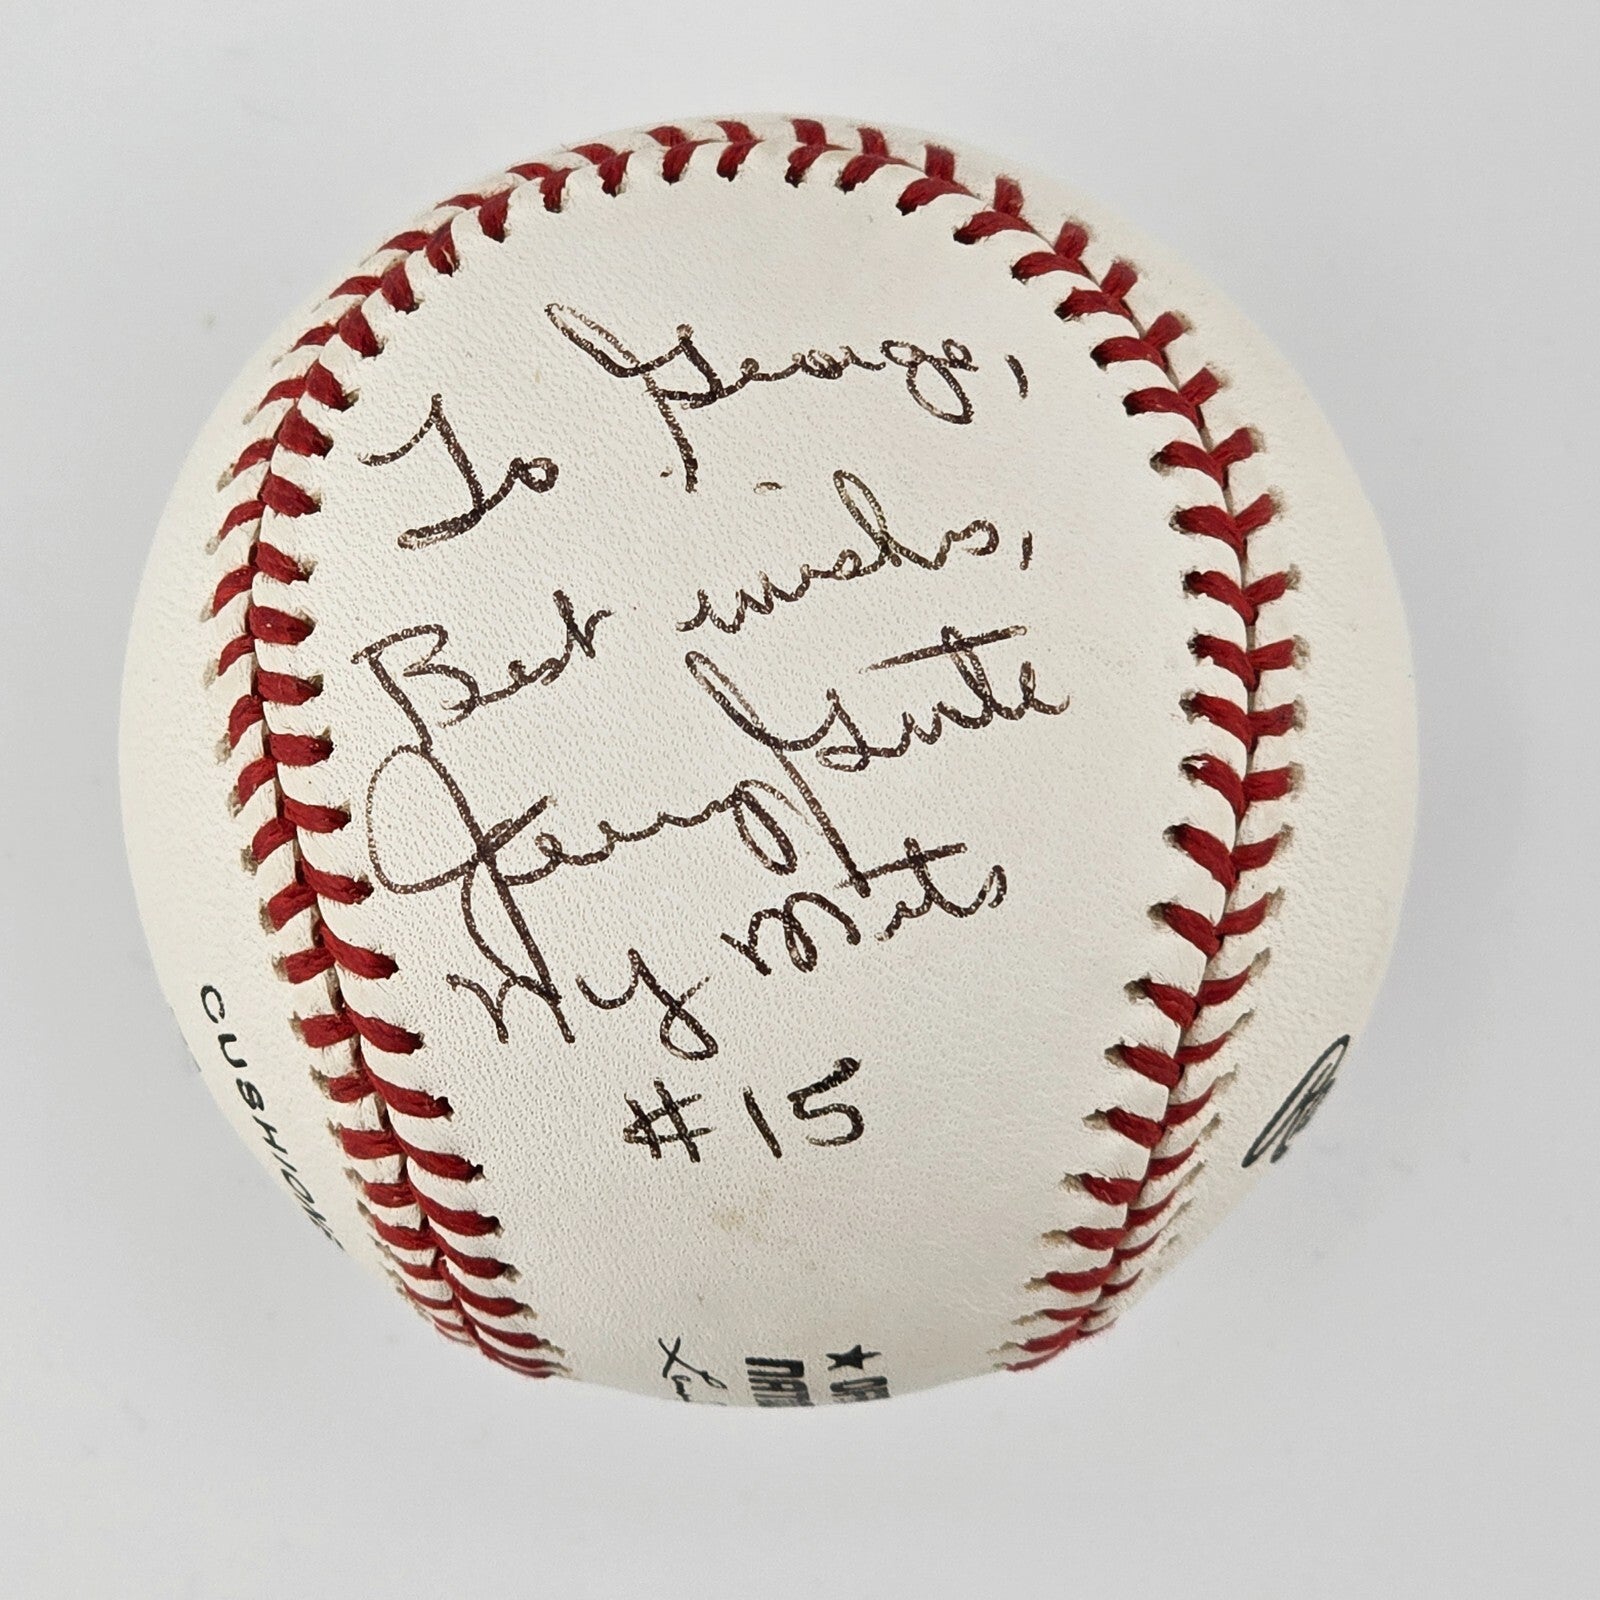 To George,
Best wishes,
Jerry Grote
NY Mets
#15
CUSHION